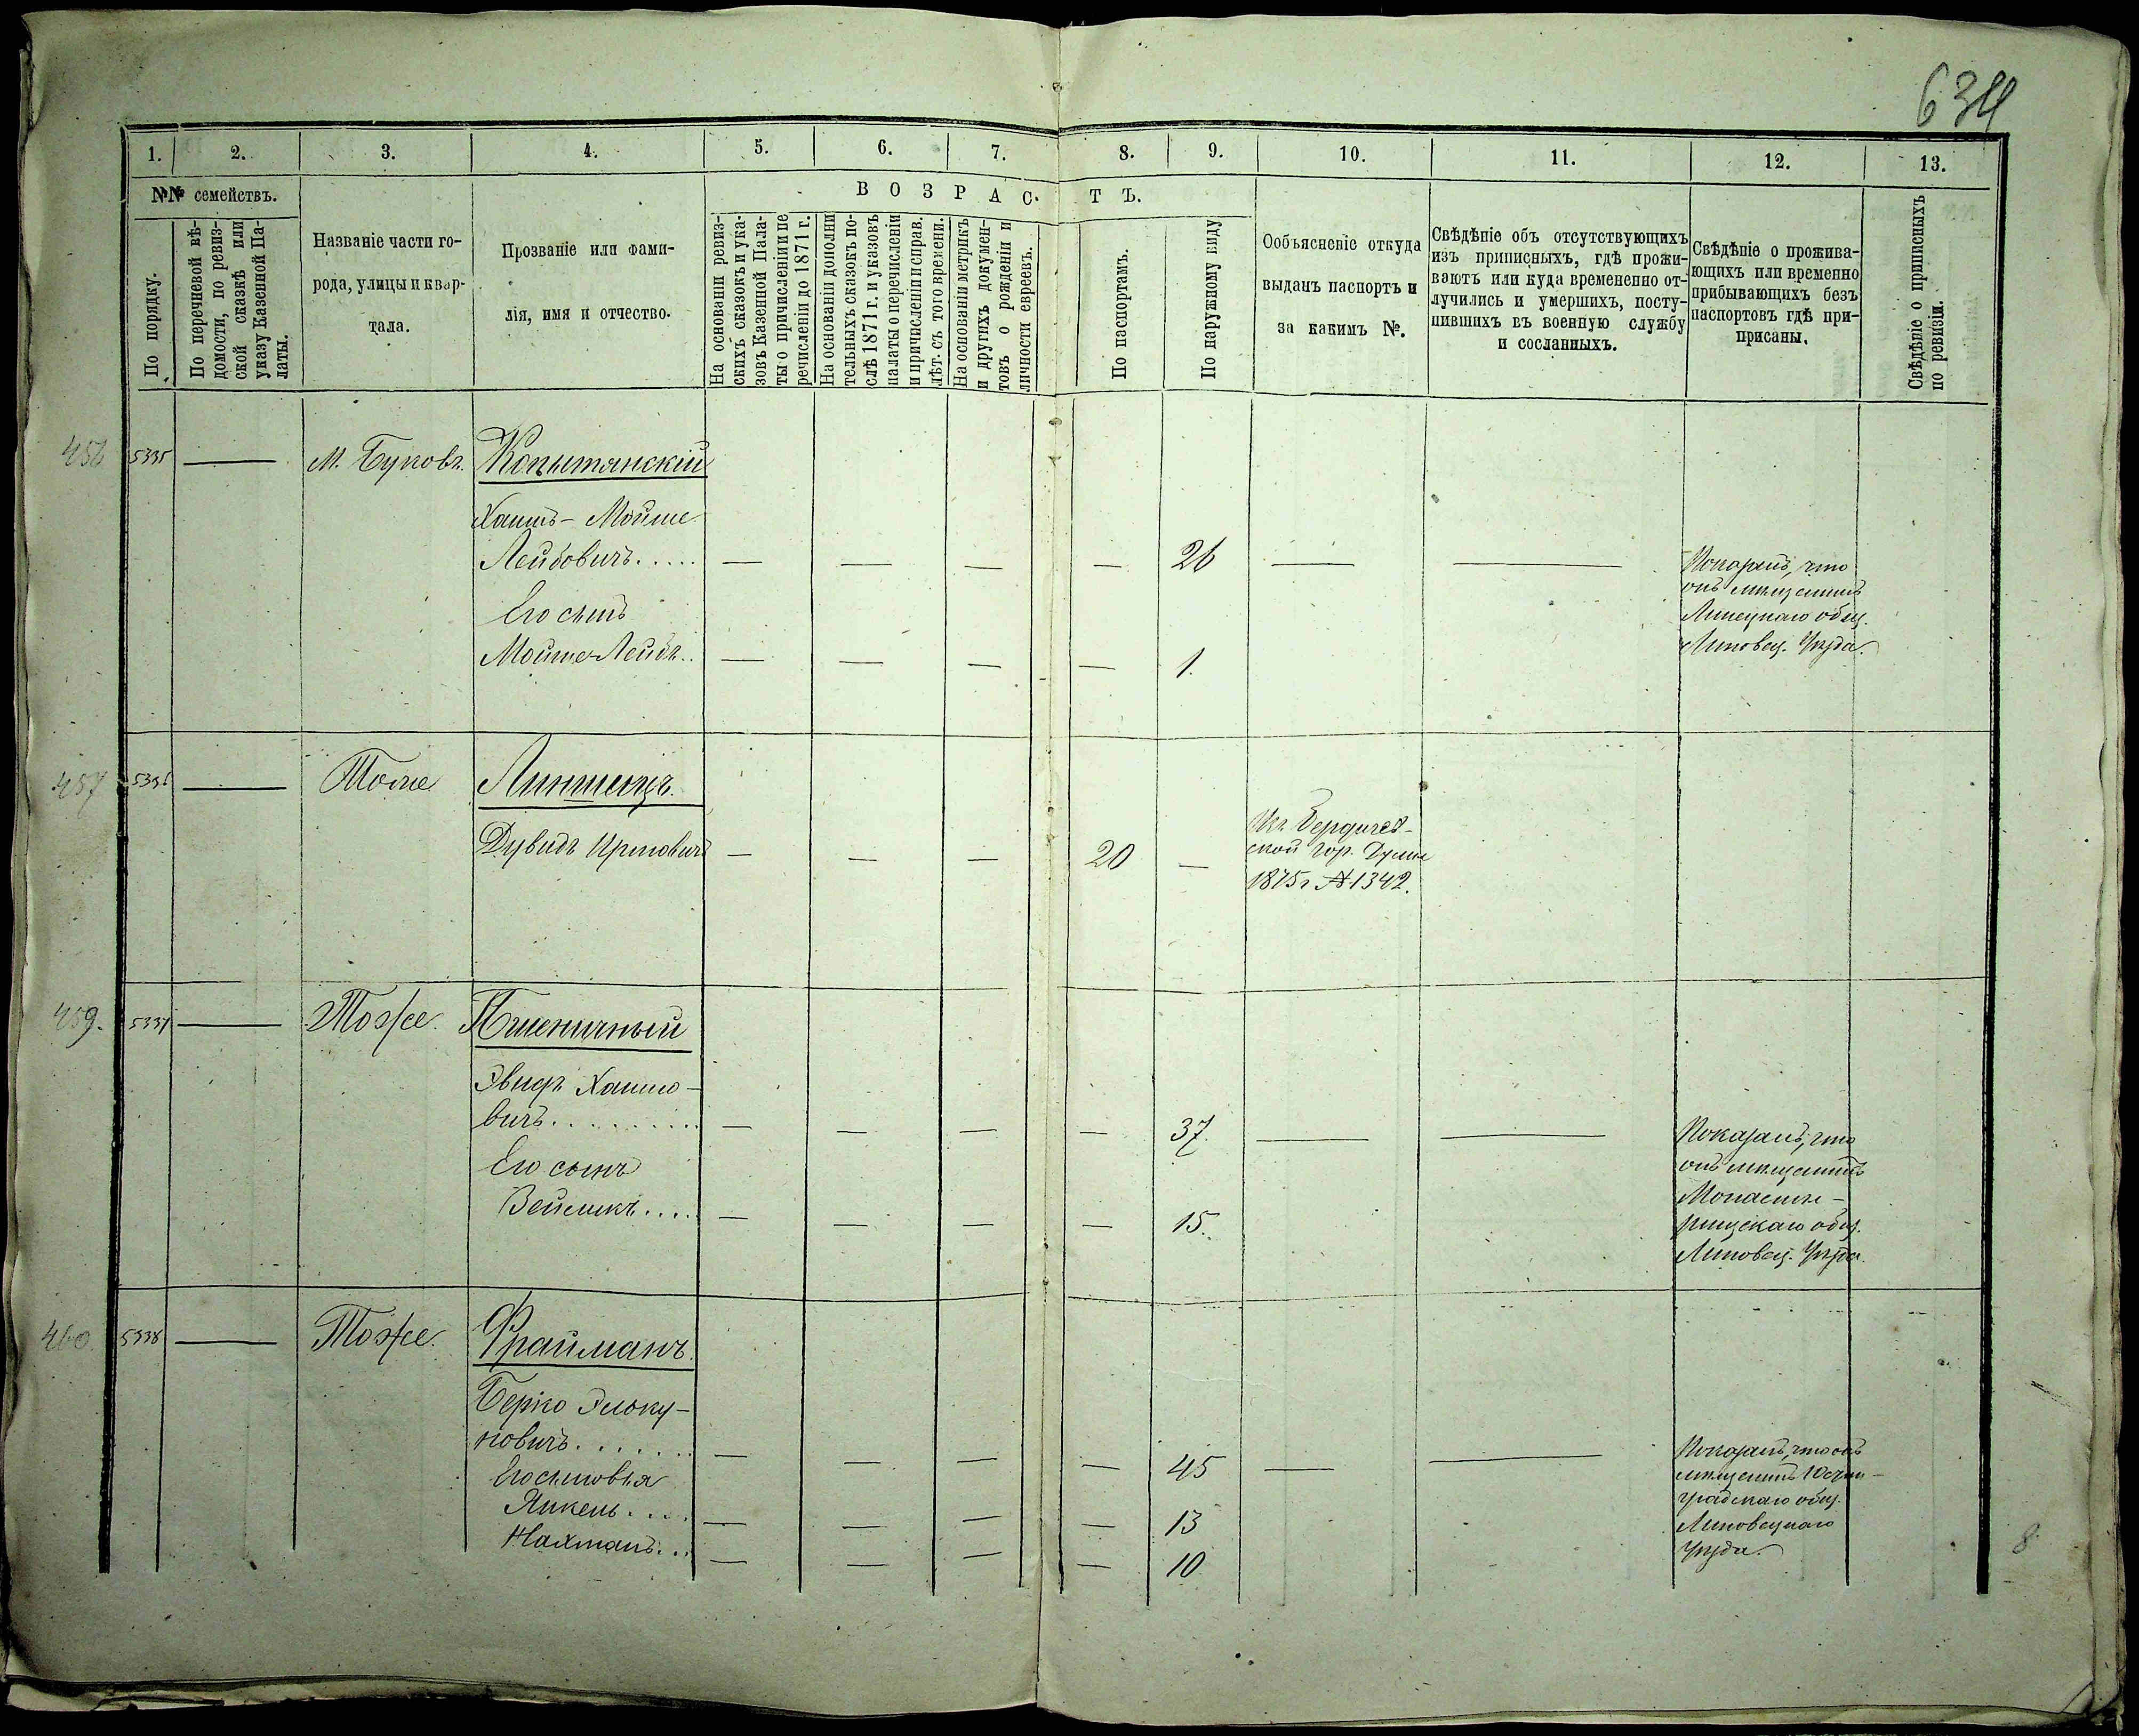 634
1. 2. 3. 4. 5. 6. 7. 8. 9. 10. 11. 12. 13.
№№ семействъ.
По порядку.
По перечневой вѣ-
домости, по ревиз-
ской сказкѣ или
указу Казенной Па-
латы.
Названіе части го-
рода, улицы и квар-
тала.
Прозваніе или фами-
лія, имя и отчество.
ВОЗРАС. ТЪ.
На основаніи ревиз-
скихъ сказокъ и ука-
зовъ Казенной Пала-
ты о причисленіи и пе
речисленіи до 1871 г.
На основаніи дополни
тельныхъ сказокъ по-
слѣ 1871 г. и указовъ
палаты о перечисленіи
и причисленіи и справ.
лѣт. съ того времени.
На основаніи метрикъ
и другихъ докумен-
товъ о рожденіи и
личности евреевъ.
По паспортамъ.
По наружному виду
Ообъясненіе откуда
выданъ паспортъ и
за какимъ №.
Свѣдѣніе объ отсутствующихъ
изъ приписныхъ, гдѣ прожи-
ваютъ или куда временено от-
лучились и умершихъ, посту-
пившихъ въ военную службу
и сосланныхъ.
Свѣдѣніе о прожива-
ющихъ или временно
прибывающихъ безъ
паспортовъ гдѣ при-
присаны.
Свѣдѣніе о приписныхъ
по ревизіи.
456 5335 — М. Буковъ. Копытянскій
Хаимъ - Мойше
Лейбовичъ..... — — — — 26 — — Показалъ, что
онъ мѣщанинъ
Липецкаго общ.
Липовец. Уѣзда.
Его сынъ
Мойше Лейбъ.. — — — — 1.
457 5336 — Тоже Линшецъ.
Дувидъ Ирмовичъ — — — 20 — Изъ Бердичев-
ской Гор. Думы
1875 г №1342.
459. 5337 — Тоже. Пшеничный
Хаимо-
вичъ......... — — — — 37. — — Показалъ, что
онъ мѣщанинъ
Монасты-
рищскаго общ.
Липовец. Уѣзда.
Его сынъ
Вейсикъ.... — — — — 15.
460. 5338 — Тоже. Фрайманъ.
Берко Элоку-
новичъ....... — — — — 45 — — Показалъ, что онъ
мѣщанинъ
градскаго общ.
Липовецкаго
Уѣзда.
Его сыновья
Янкель.... — — — — 13
Нахманъ... — — — — 10
8